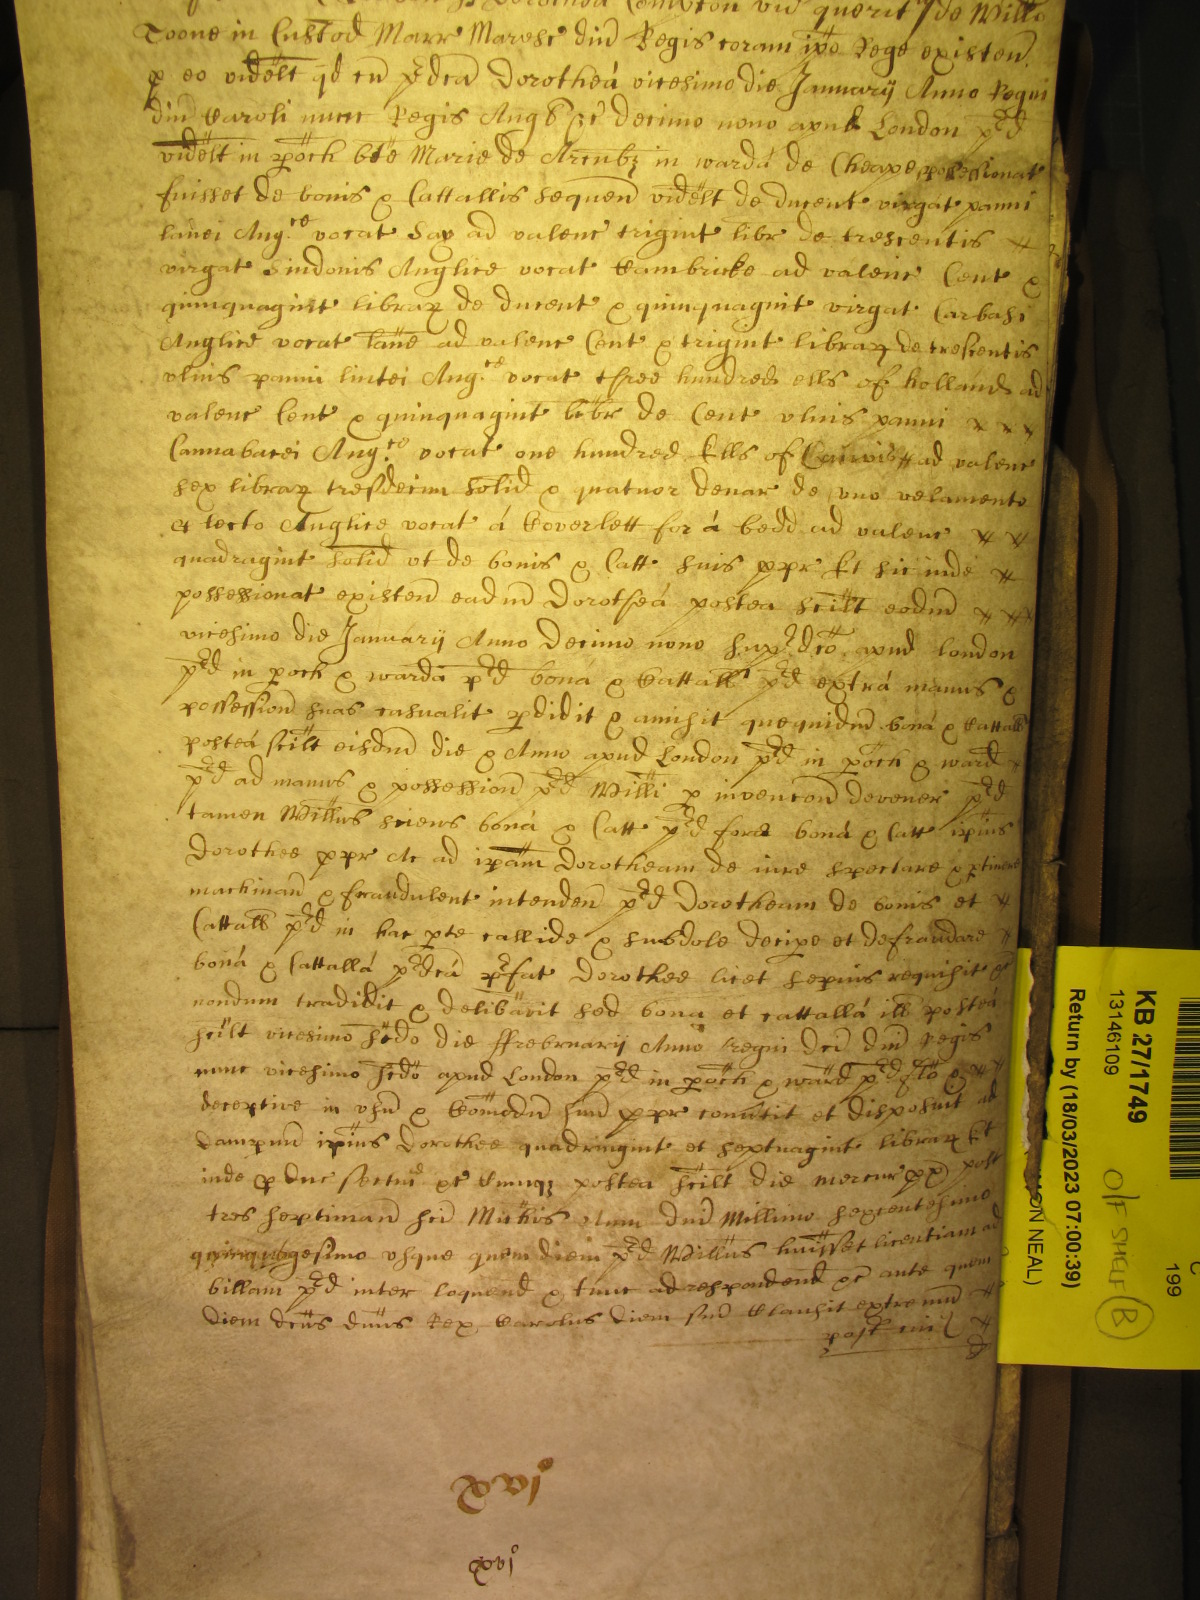 Dorothea vid querit de Willo
Toone in Custod Marr Maresc dni Regis coram ipo Rege existen
p eo videlt qd cu predca Dorothea vicesimo die Januarij Anno Regni
dni Caroli nunc Regis Angl &c decimo nono apud London pred
videlt in poch bte Marie de Arcubz in warda de Cheape possessionat
fuisset de bonis & Cattallis sequen videlt de ducent virgat panni
lanei Ang.ce vocat Say ad valenc trigint libr de trescentis
virgat Sindonis Anglice vocat Cambricke ad valenc Cent &
quinquagint librar de ducent & quinquagint virgat Carbasi
Anglice vocat lane ad valenc Cent & trigint librar de trescentis
vlnis panni lintei Ang.ce vocat three hundred ells of holland ad
valenc Cent & quinquagint libr de Cent vlnis panni
Cannabacei Ang.ce vocat one hundred Ells of Canvis ad valenc
sex librar tresdecim solid & quatuor denar de vno velamento
lecto Anglice vocat a Coverlett for a bedd ad valenc
quadragint solid vt de bonis & Catt suis ppr Et sic inde
possessionat existen eadm Dorothea postea scilt eodm
vicesimo die Januarij Anno Decimo nono supradco apud london
pred in poch & warda pred bona & Cattall pred extra manus &
possession suas casualit pdidit & amisit quequidm bona & Cattall
postea scilt eisdm die & Anno apud London pred in poch & ward
pred ad manus & possession pred Willi p invencon devener pred
tamen Willus sciens bona & Catt pred fore bona & Catt ipius
Dorothee ppr Ac ad ipam Dorotheam de iure spectare & ptinere
machinan & fraudulent intenden pred Dorotheam de bonis et
Cattall pred in hac pte callide & subdole decipe et defraudare
bona & Cattalla predca prefat Dorothee licet sepius requisit &c
nondum tradidit & delibavit sed bona et cattalla ill postea
scilt vicesimo scdo die ffrebruarij Anno regni dci dni Regis
nunc vicesimo scdo apud London pred in poch & ward pred
deceptive in vsu & Comodu suu ppr convtit et disposuit ad
dampnu ipius Dorothee quadringint et septuagint librar Et
inde p duc sectam &c Cumqz postea scilt die mercur pp post
tres septiman sci Michis Anno dni Millimo sexcentesimo
quinquagesimo vsque quem diem pred Willus huisset licentiam ad
billam pred inter loquend & tunc ad respondend &c ante quem
diem dcus dnus Rex Carolus diem suu Clausit extremu
xvj°
KB 27/1749
13146109
Return by (18/03/2023 07:00:39)
SIMON NEAL)
O/F SHELF
B
199